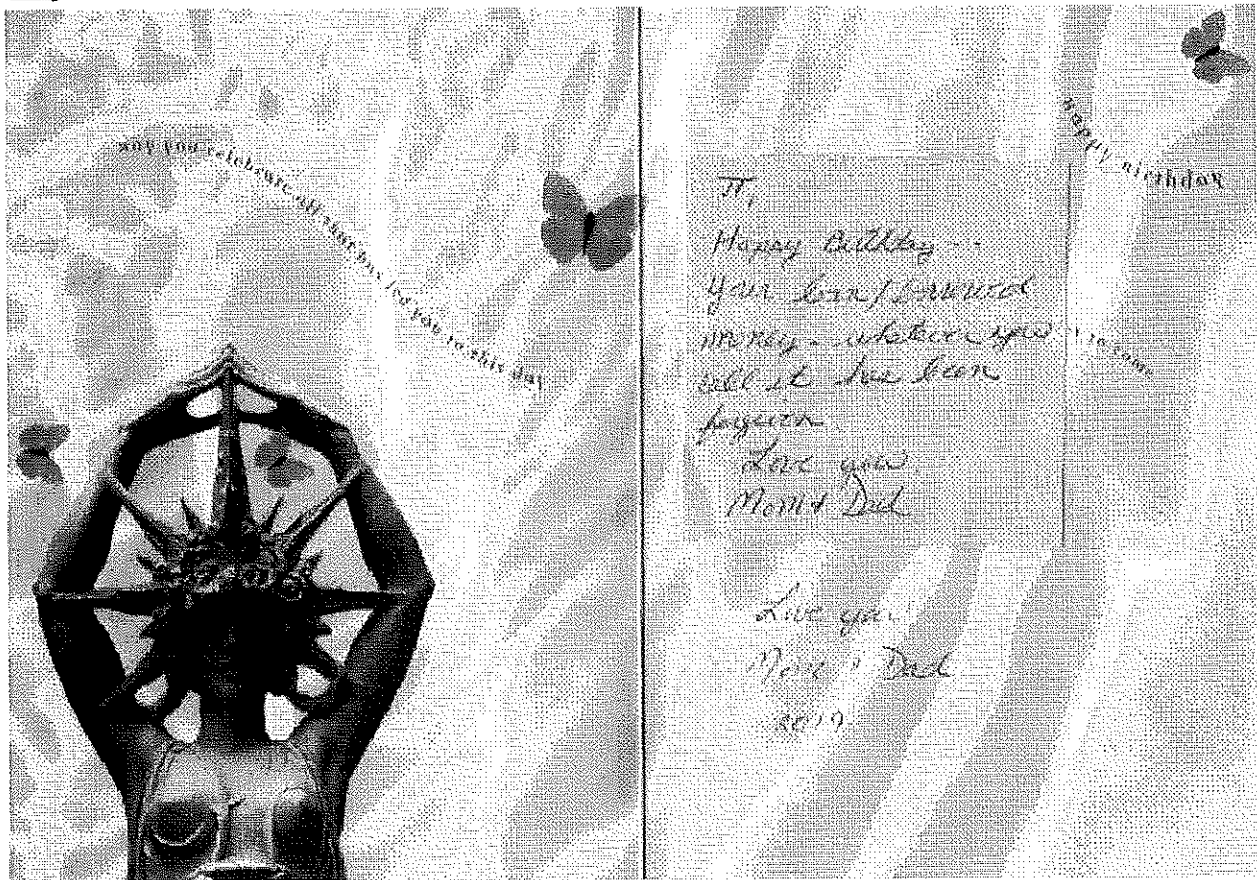 may you celebrate all that has led you to this day
happy birthday
TT,
Happy Birthday --
Your loan/borrowed
money - whatever you
call it has been
forgiven
Love you,
Mom & Dad
to come
Love you
Mom & Dad